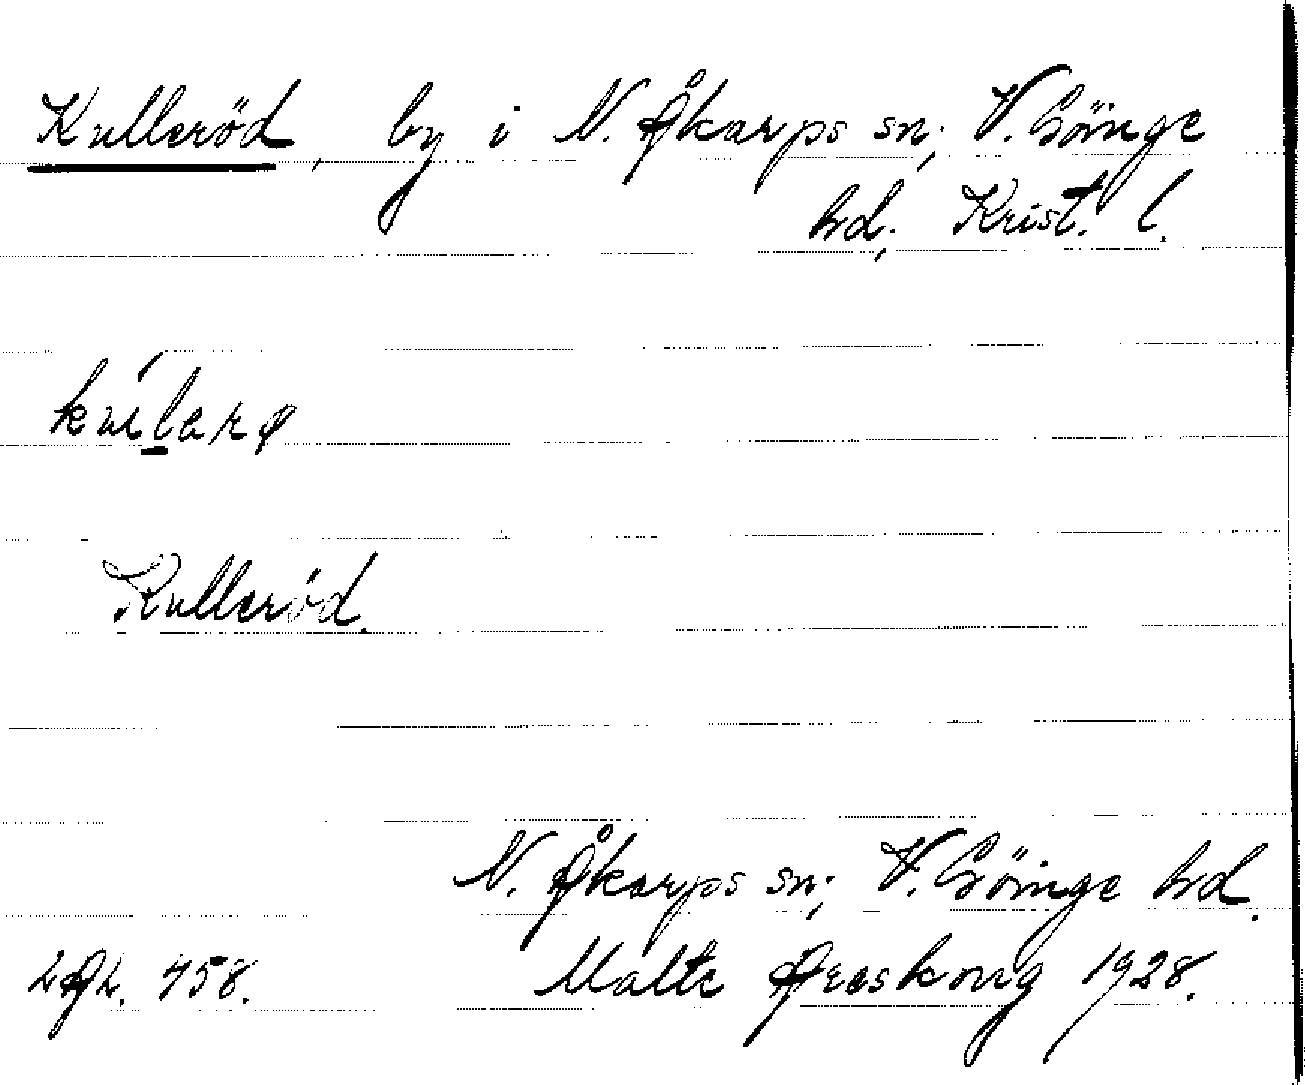 Kulleröd, by i N. Åkarps sn; V. Göinge
hd; Krist. l.
Kulleröd.
N. Åkarps sn; V. Göinge hd.
LAL. 458. Malte Areskoug 1928.